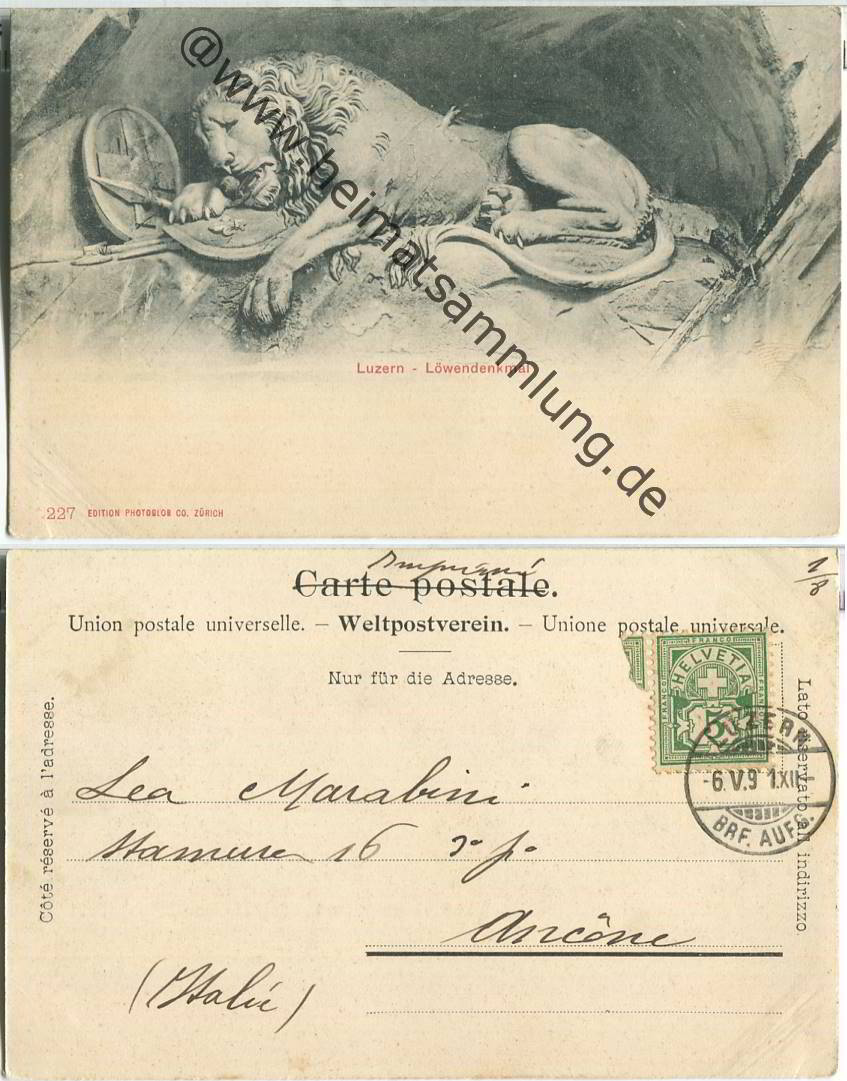 @www.heimatsammlung.de
Luzern - Löwendenkmal
227 EDITION PHOTOGLOB CO. ZÜRICH
Imprimé
1/8
Carte postale.
Union postale universelle. – Weltpostverein. – Unione postale universale.
Nur für die Adresse.
Côté réservé à l'adresse.
Lato riservato all indirizzo.
FRANCO
HELVETIA
FRANCO
FRANCO
5
LUZERN
-6.V.9 1.XII-
BRF. AUFG.
Lea Marabini
16 3º pº
Ancône
(Italie)